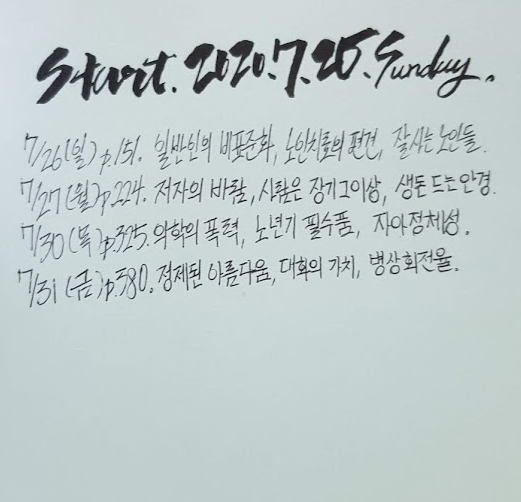 Start. 2020.7.26. Sunday.
7/26(일)p.151. 일반인의 비표준화, 노인치료의 편견, 잘사는 노인들.
7/27(월)p.224. 저자의 바람, 사람은 장기그이상, 생돈 드는 안경.
7/30(목)p.325. 의학의 폭력, 노년기 필수품, 자아정체성.
7/31(금)p.580. 정제된 아름다움, 대화의 가치, 병상회전율.